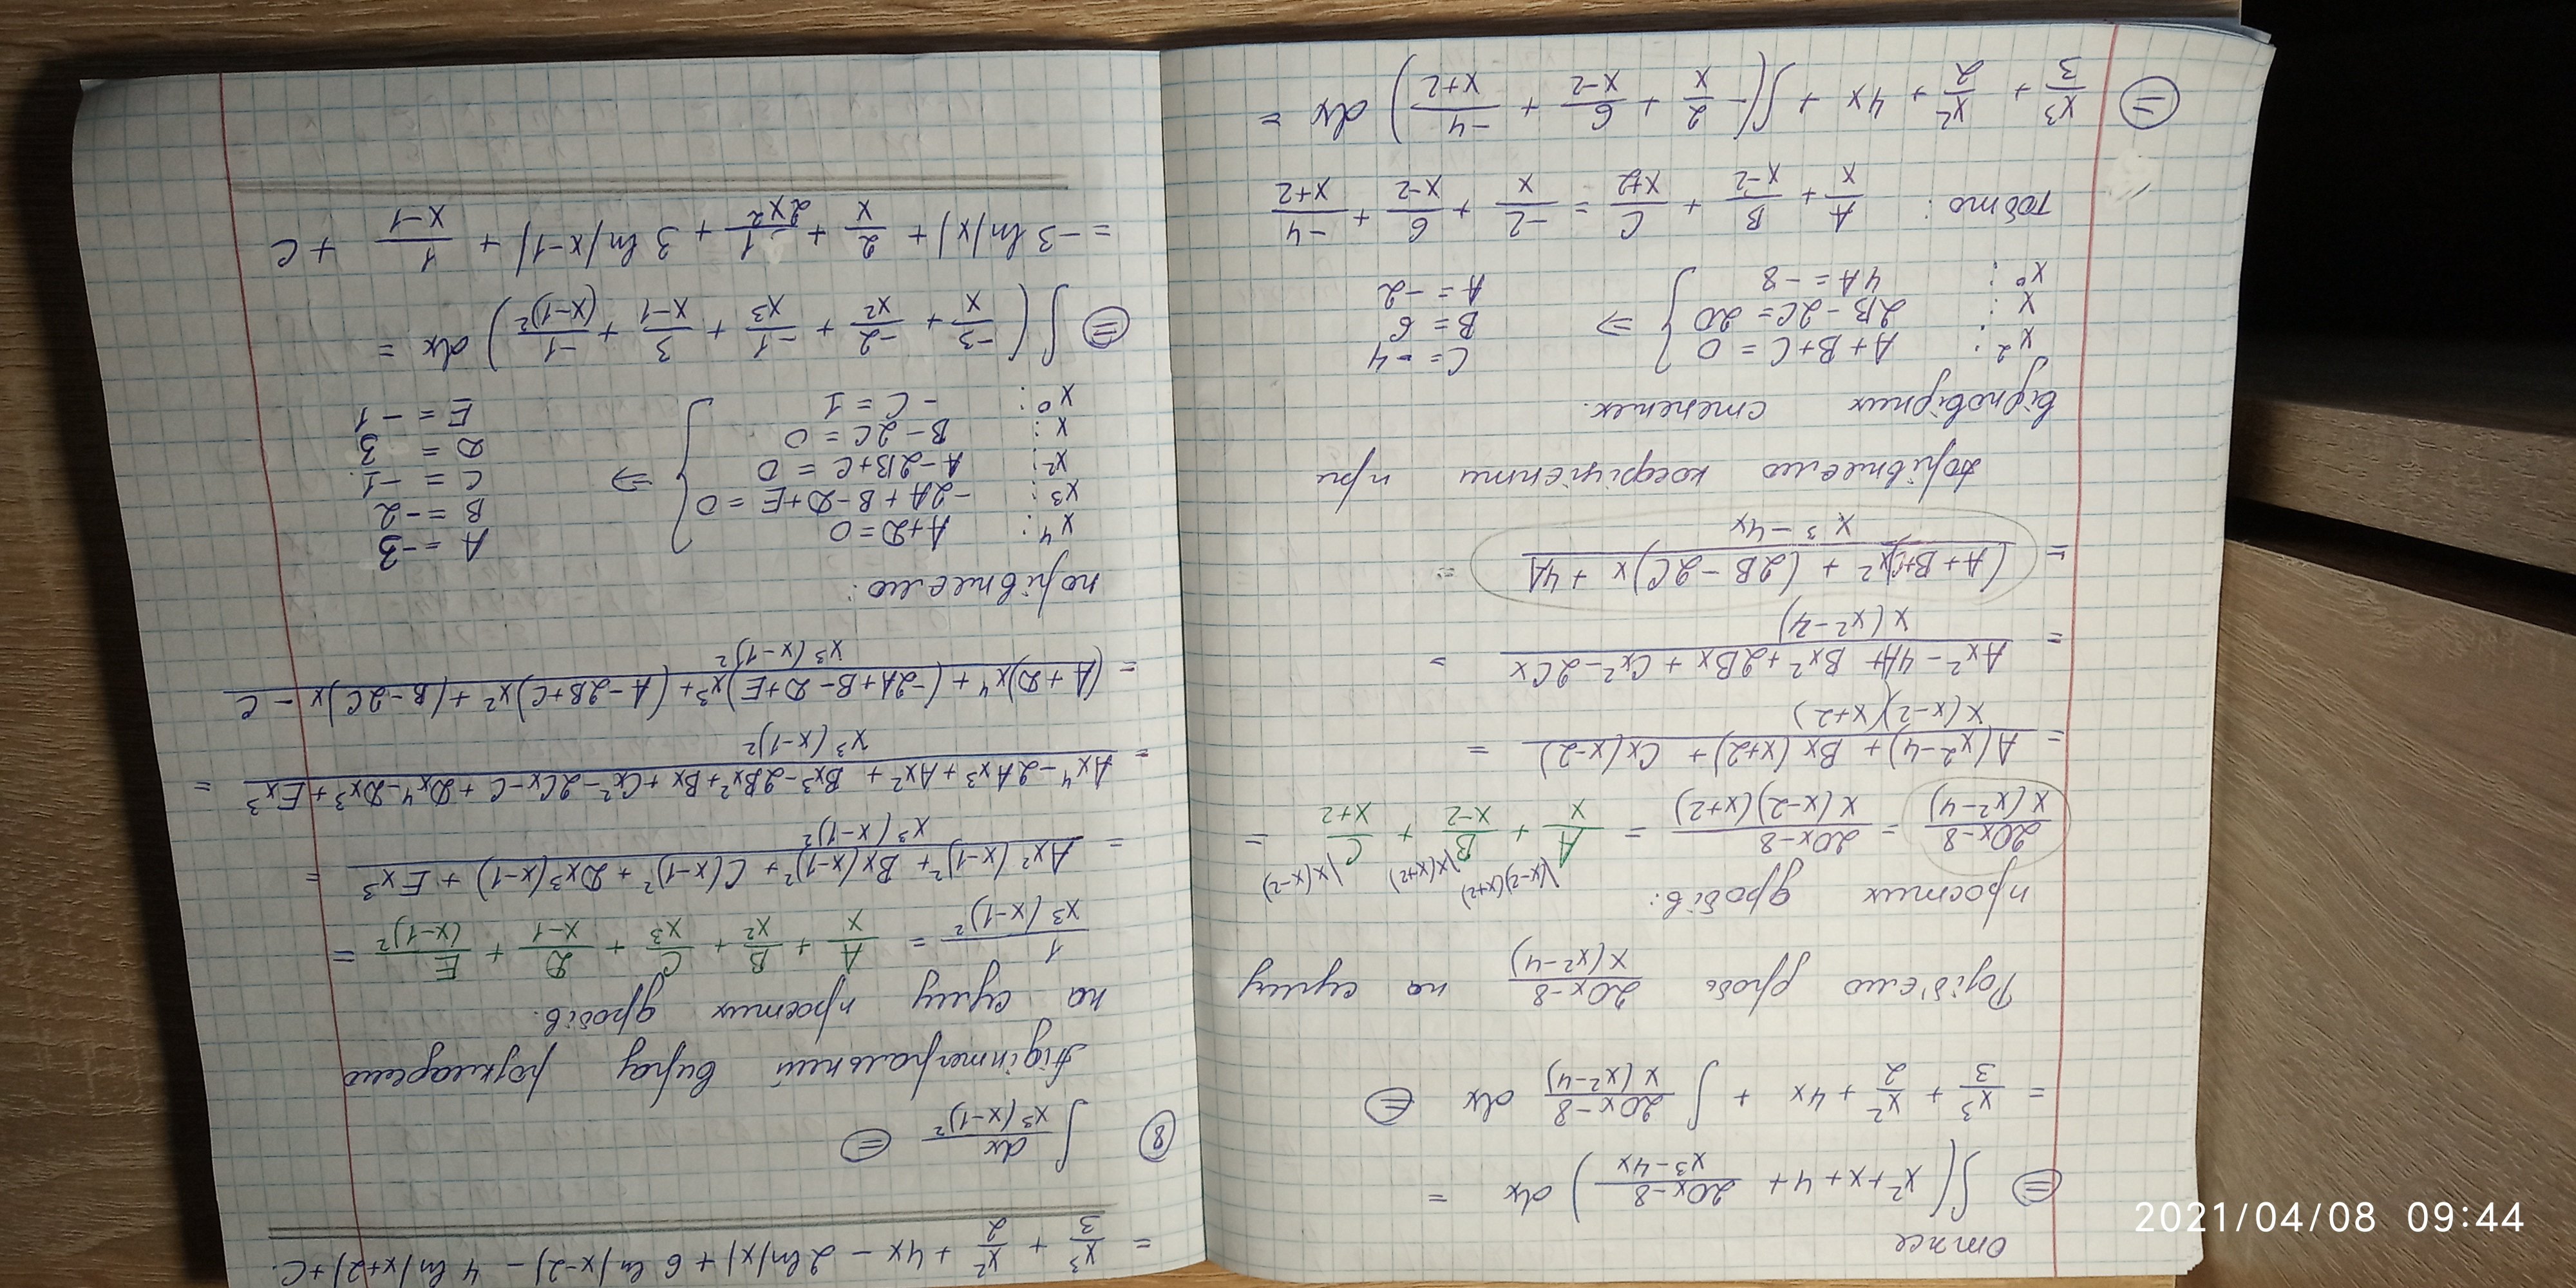 отже
⊜ ∫(x²+x+4+ (20x-8)/(x³-4x)) dx =
= x³/3 + x²/2 + 4x + ∫ (20x-8)/(x(x²-4)) dx ⊜
Розіб'ємо дробь (20x-8)/(x(x²-4)) на суму
простих дробів:
(20x-8)/(x(x²-4)) = (20x-8)/(x(x-2)(x+2)) = A/x \(x-2)(x+2) + B/(x-2) \x(x+2) + C/(x+2) \x(x-2) =
= (A(x²-4)+ Bx(x+2)+ Cx(x-2))/(x(x-2)(x+2)) =
= (Ax²-4A+ Bx²+2Bx + Cx²-2Cx)/(x(x²-4)) =
= ((A+B+C)x² + (2B-2C)x + 4A)/(x³-4x) =
Порівнюємо коефіцієнти при
відповідних степенях.
x²: A+B+C = 0 } C = -4
x: 2B-2C = 20 } ⇒ B = 6
x⁰: 4A = -8 } A = -2
тобто: A/x + B/(x-2) + C/(x+2) = -2/x + 6/(x-2) + -4/(x+2)
⊜ x³/3 + x²/2 + 4x + ∫(-2/x + 6/(x-2) + -4/(x+2)) dx =
= x³/3 + x²/2 + 4x - 2 ln|x| + 6 ln|x-2| - 4 ln|x+2| + C.
⑧ ∫ dx/(x³(x-1)²) ⊜
Підінтегральний вираз розкладемо
на суму простих дробів.
1/(x³(x-1)²) = A/x + B/x² + C/x³ + D/(x-1) + E/(x-1)² =
= (Ax²(x-1)² + Bx(x-1)² + C(x-1)² + Dx³(x-1) + Ex³)/(x³(x-1)²) =
= (Ax⁴-2Ax³+Ax² + Bx³-2Bx²+Bx + Cx²-2Cx-C + Dx⁴-Dx³+Ex³)/(x³(x-1)²) =
= ((A+D)x⁴ + (-2A+B-D+E)x³+ (A-2B+C)x² + (B-2C)x - C)/(x³(x-1)²)
порівнюємо:
x⁴: A+D=0 } A = -3
x³: -2A+B-D+E = 0 } B = -2
x²: A-2B+C = 0 } ⇒ C = -1
x: B-2C = 0 } D = 3
x⁰: -C = 1 } E = -1
⊜ ∫(-3/x + -2/x² + -1/x³ + 3/(x-1) + -1/(x-1)²) dx =
= -3 ln|x| + 2/x + 1/2x² + 3 ln|x-1| + 1/(x-1) + C
2021/04/08 09:44